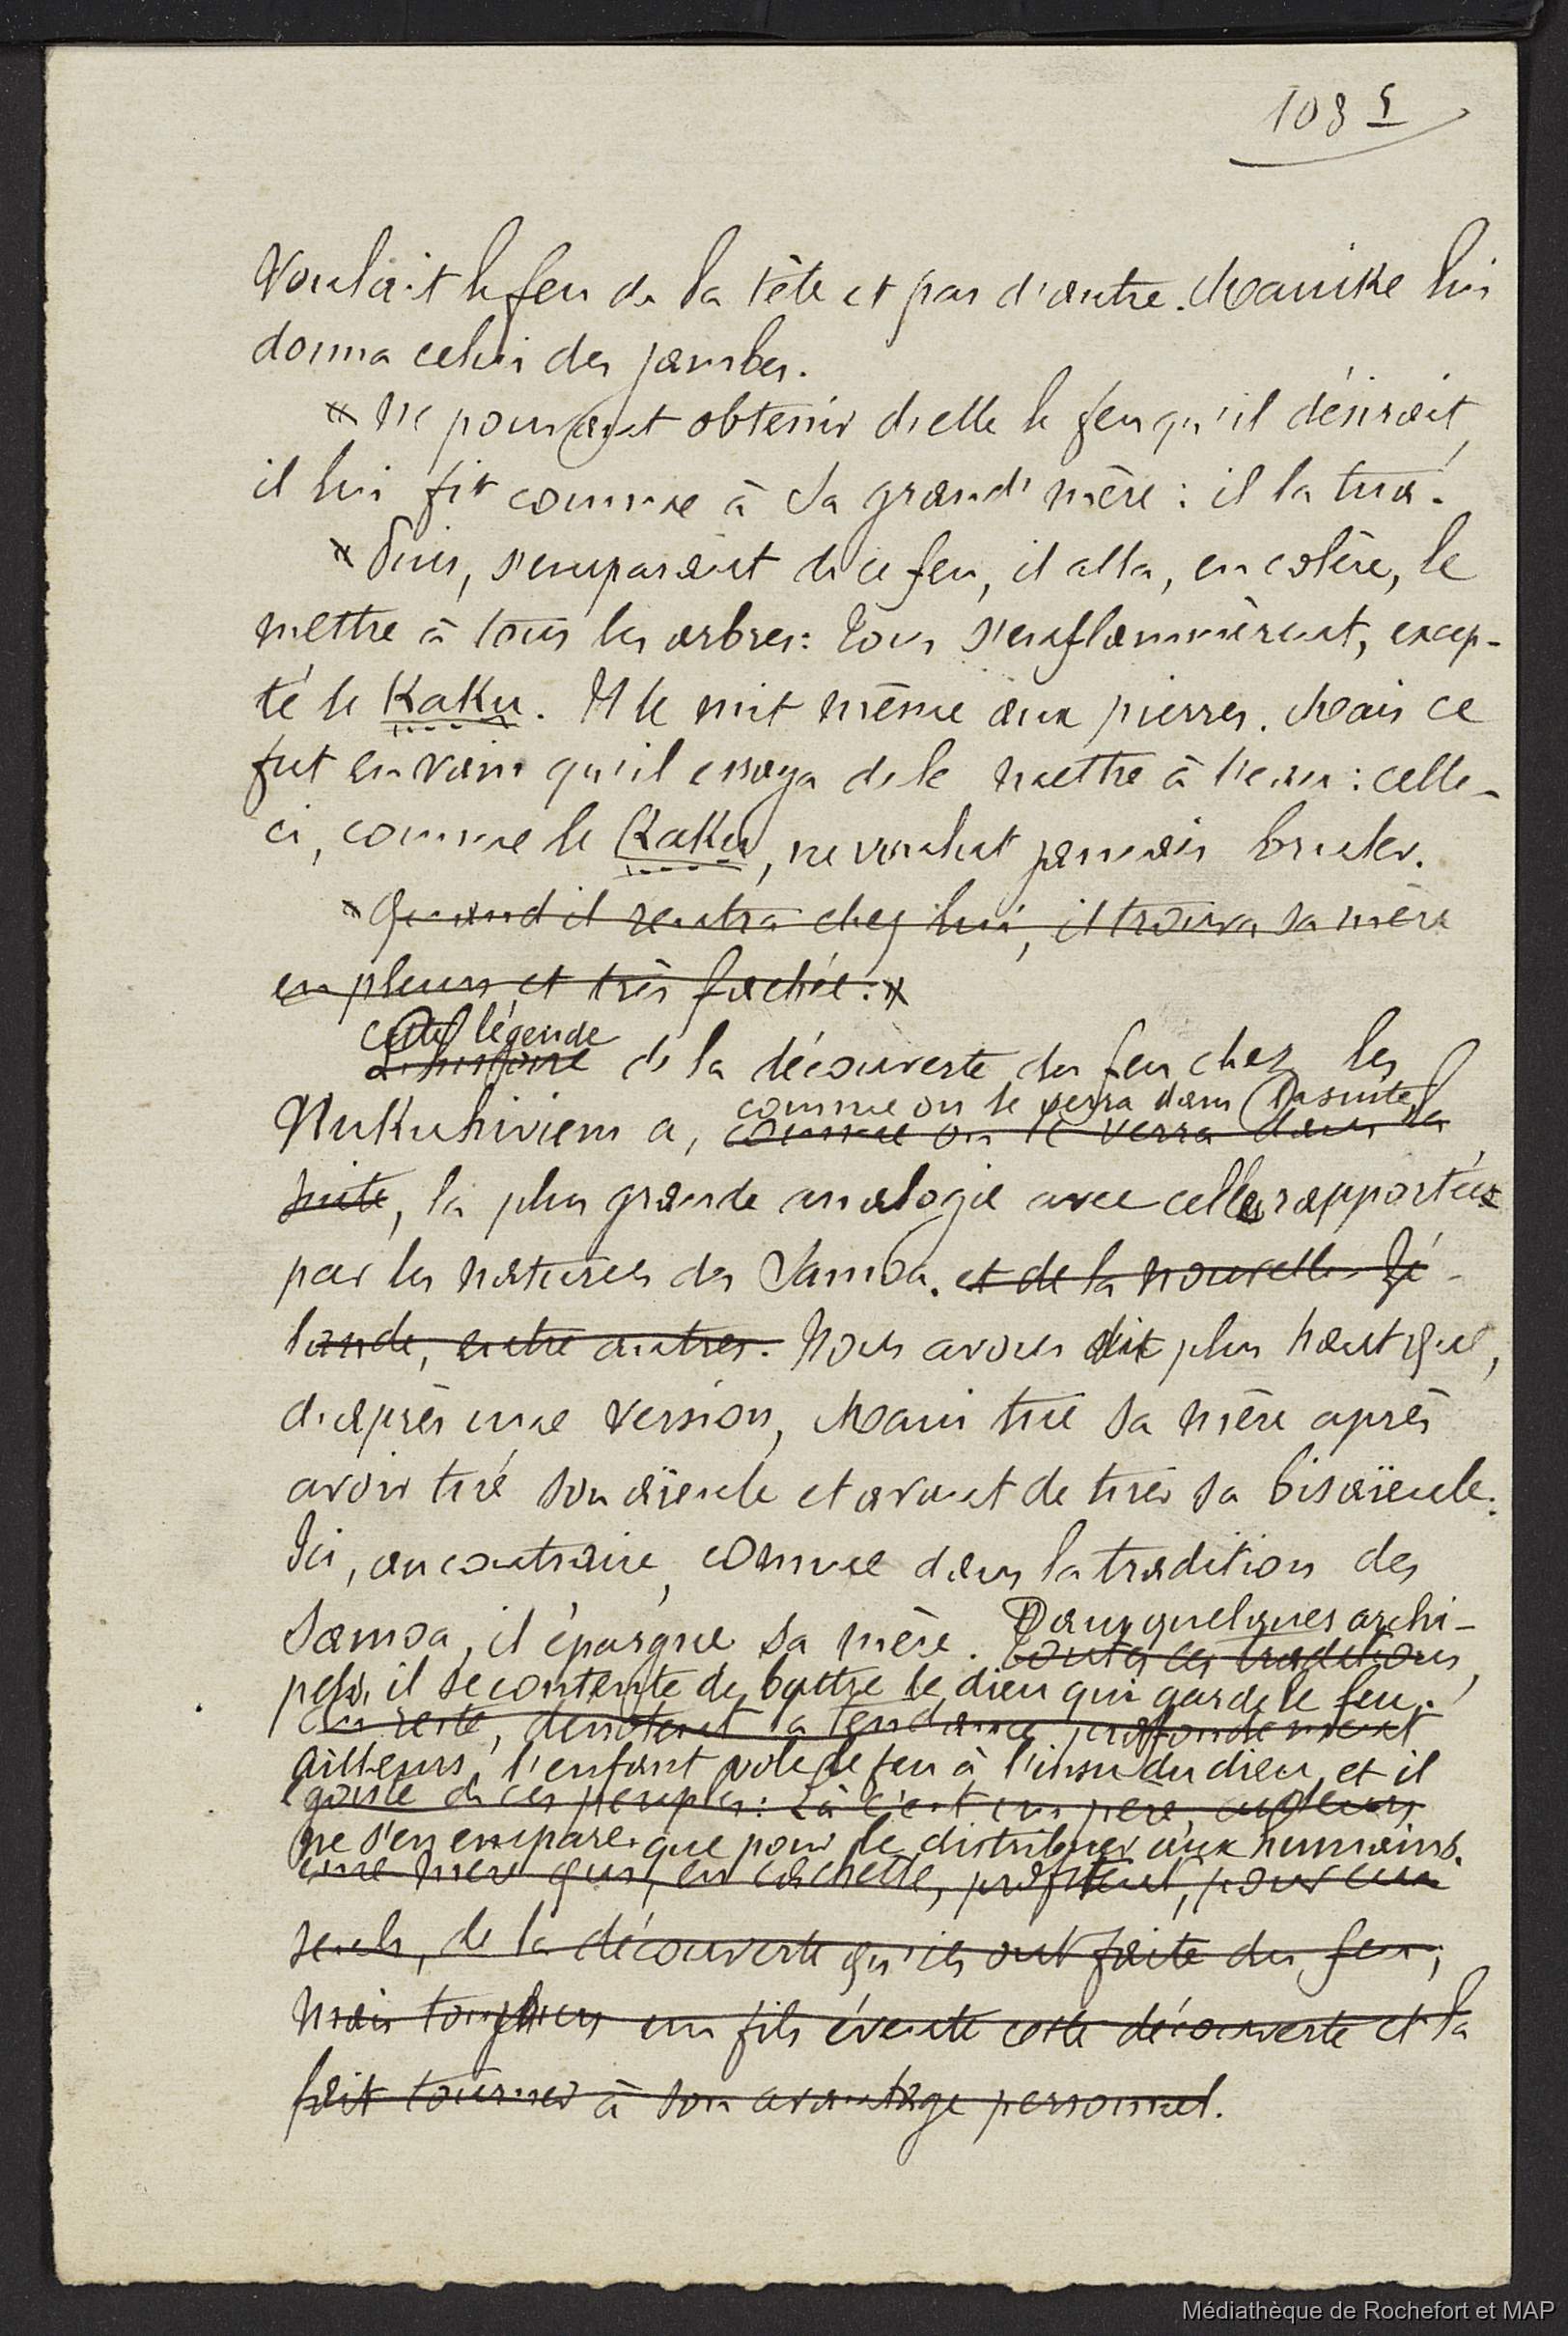 108 5
voulait le feu de la tête et pas d'autre. Mauike lui
donna celui des jambes.
« Ne pouvant obtenir d'elle le feu qu'il désirait,
il lui fit comme à sa grand'mère : il la tua.
« Puis, s'emparant de ce feu, il alla, en colère, le
mettre à tous les arbres : tous s'enflammèrent, excep-
té le Kaku. Il le mit même aux pierres. Mais ce
fut en vain qu'il essaya de le mettre à l'eau : celle-
ci, comme le Kaku, ne voulut jamais bruler.
« Quand il rentra chez lui, il trouva sa mère
en pleurs et très fachée. »
Cette légende
L'histoire de la découverte du feu chez les
comme on le verra dans la suite,
Nukuhiviens a, comme on le verra dans la
suite, la plus grande analogie avec celles rapportées
par les natures des Samoa. et de la nouvelle Zé-
lande, entre autres. Nous avons dit plus haut que,
d'après une version, Maui tue sa mère après
avoir tué son aïeule et avant de tuer sa bisaïeule.
Ici, au contraire, comme dans la tradition des
Dans quelques archi-
Samoa, il épargne sa mère. Toutes ces traditions,
pels, il se contente de battre le dieu qui garde le feu.
du reste, dénotent la tendance profondément
ailleurs, l'enfant vole le feu à l'insu du dieu, et il
égoïste de ces peuples : Là c'est un père, ailleurs
ne s'en empare que pour le distribuer aux humains.
une mère qui, en cachette, profitent, pour eux
seuls, de la découverte qu'ils ont faite du feu ;
mais toujours un fils évente cette découverte et la
fait tourner à son avantage personnel.
Médiathèque de Rochefort et MAP